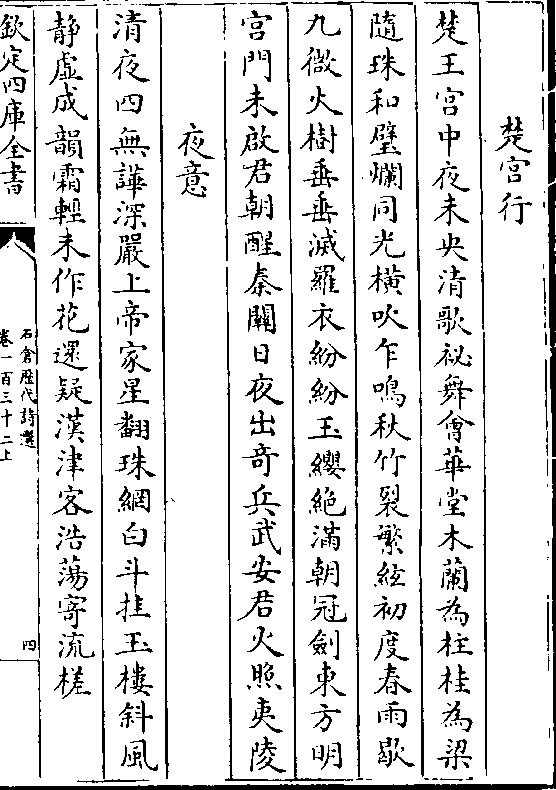 楚宮行
楚王宮中夜未央清歌祕舞㑹華堂木蘭為柱桂為梁
隨珠和璧爛同光横吹乍鳴秋竹裂繁絃初度春雨歇
九微火樹垂垂滅羅衣紛紛玉纓絶滿朝冠劍東方明
宮門未啟君朝醒秦關日夜出竒兵武安君火照夷陵
夜意
清夜四無譁深嚴上帝家星翻珠網白斗挂玉樓斜風
静虚成韻霜輕未作花還疑漢津客浩蕩寄流槎
欽定四庫全書
石倉歴代詩選
卷一百三十二上
四